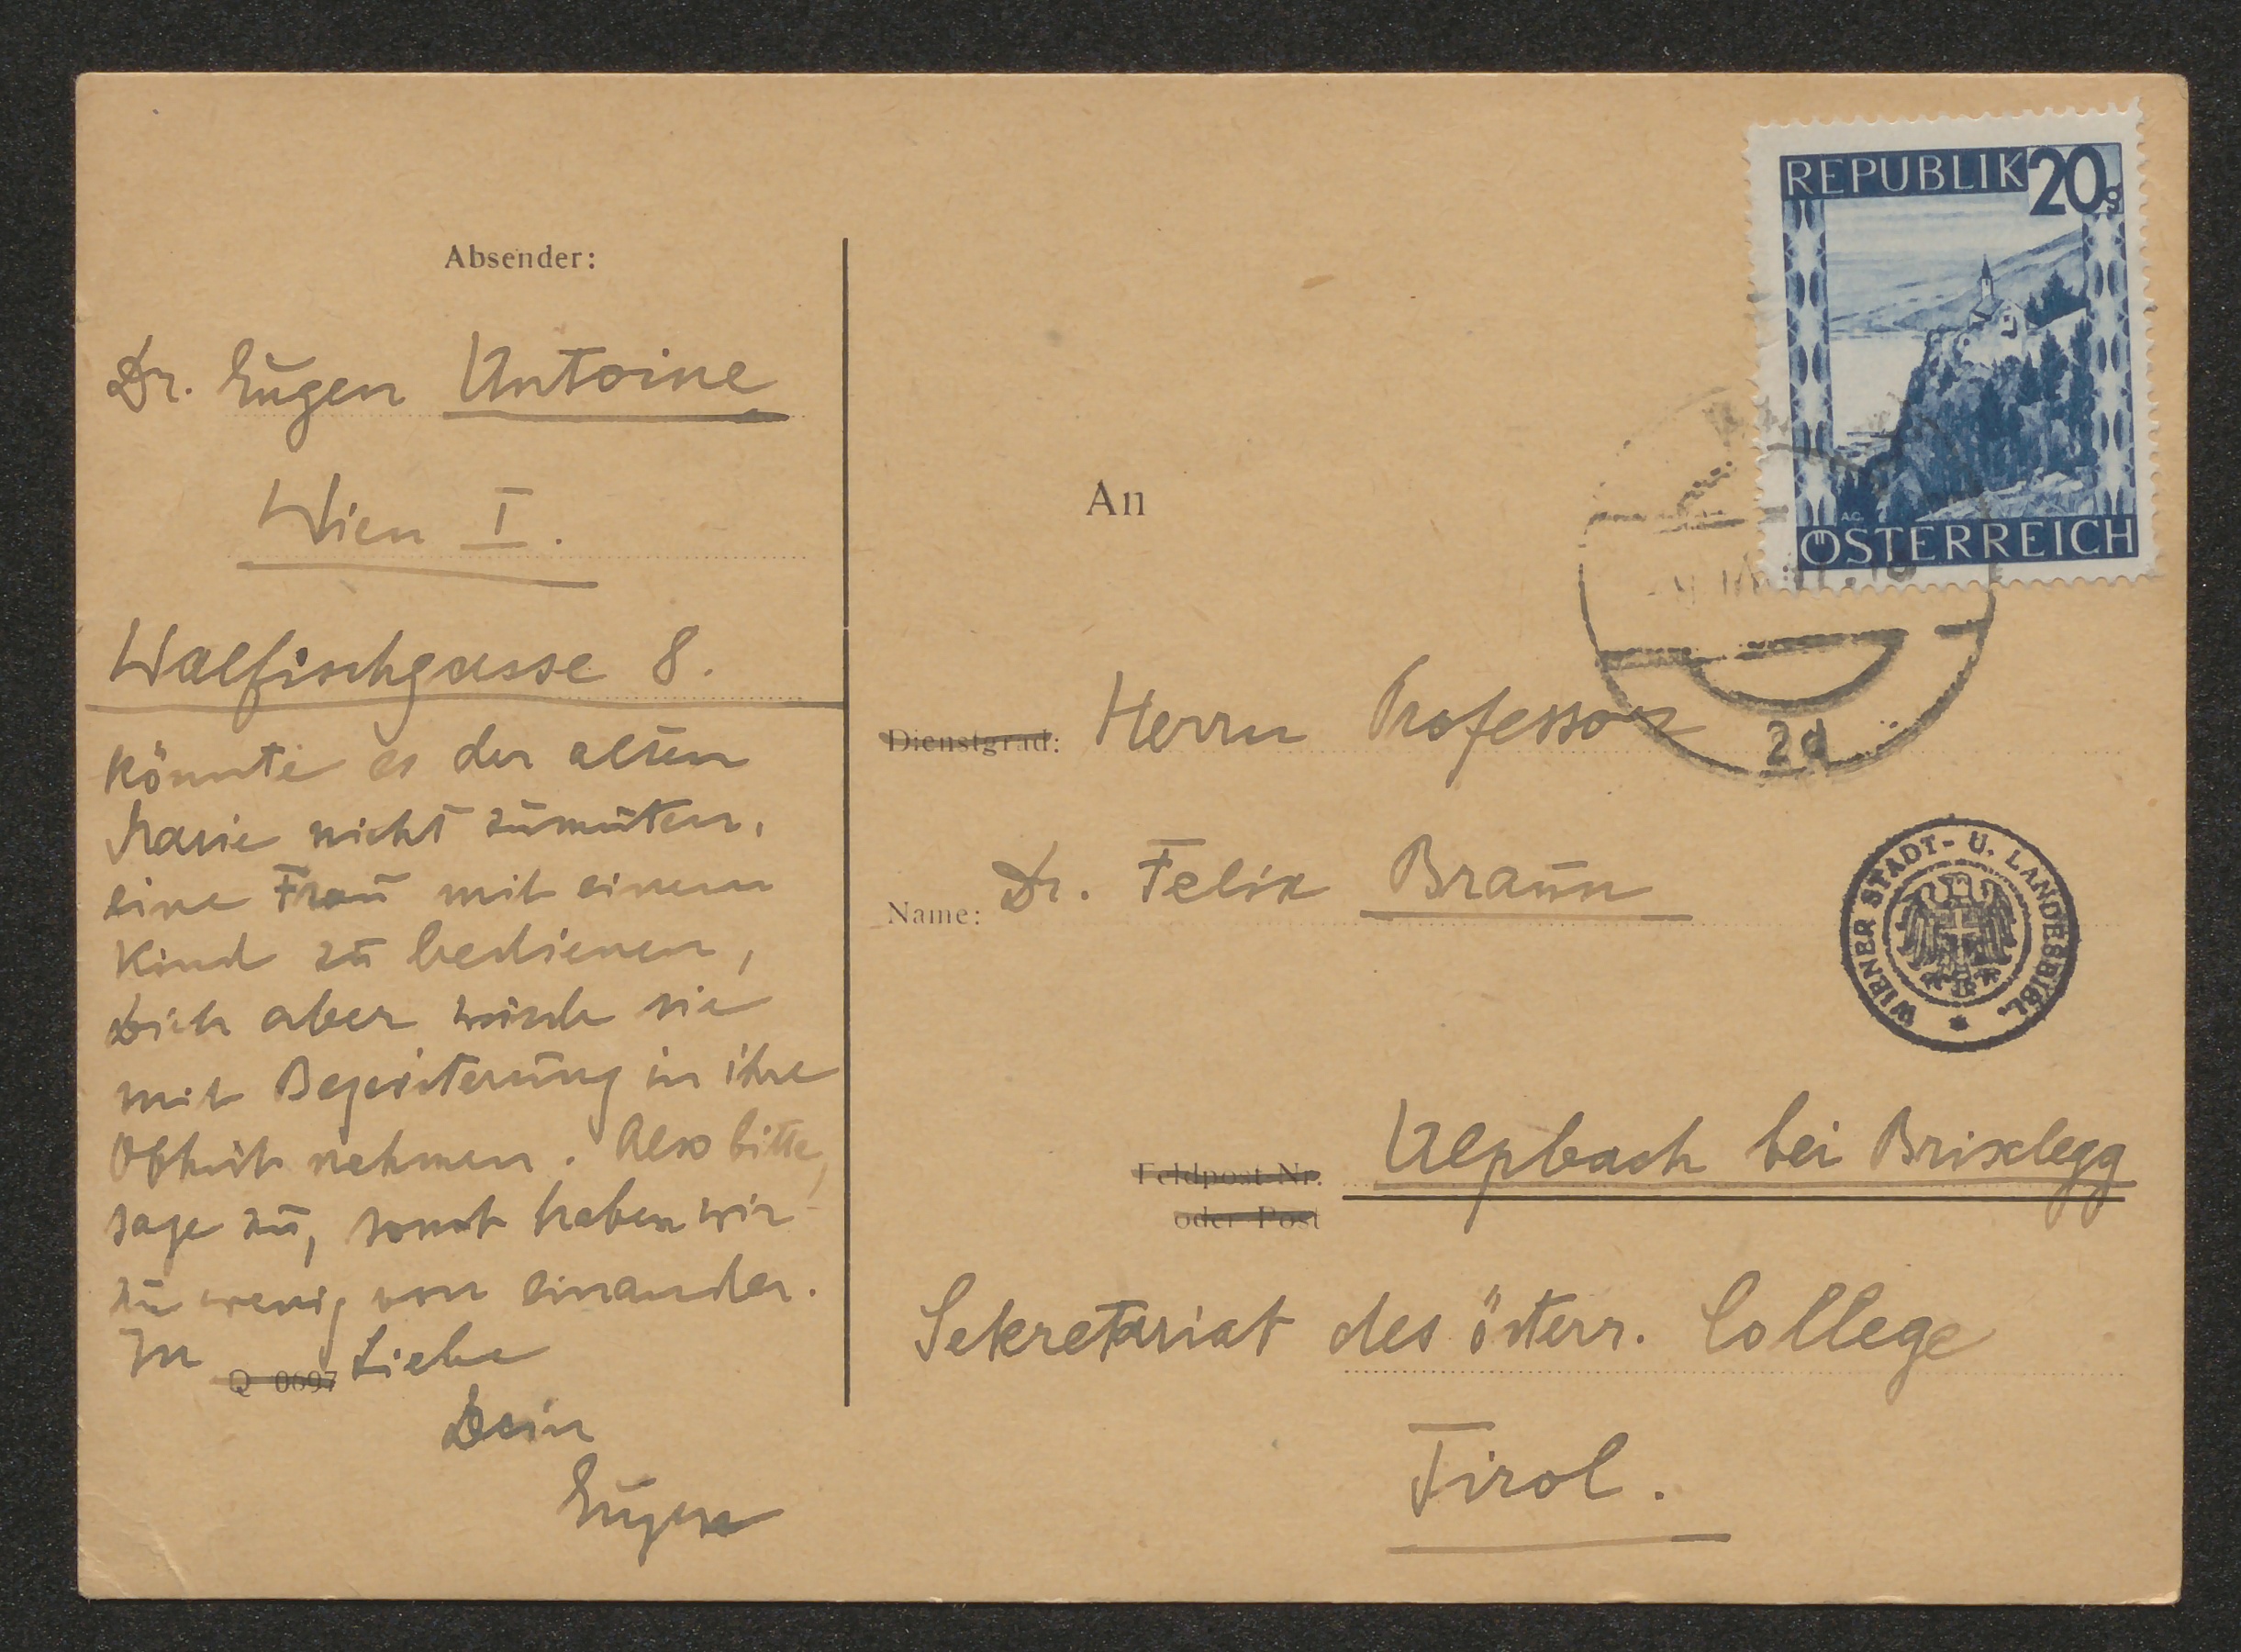 Absender:
Dr. Eugen Antoine
Wien I.
Walfischgasse 8.
könnte es der alten
Marie nicht zumuten,
eine Frau mit einem
Kind zu bedienen,
Dich aber würde sie
mit Begeisterung in ihre
Obhut nehmen. Also bitte,
sage zu, sonst haben wir
zu wenig von einander.
In Liebe
Q 0697
Dein
Eugen
REPUBLIK 20g
ÖSTERREICH
An
2d
Dienstgrad: Herrn Professor
Name: Dr. Felix Braun
WIENER STADT- U. LANDESBIBL.
Feldpost-Nr. Alpbach bei Brixlegg
oder Post
Sekretariat des österr. College
Tirol.